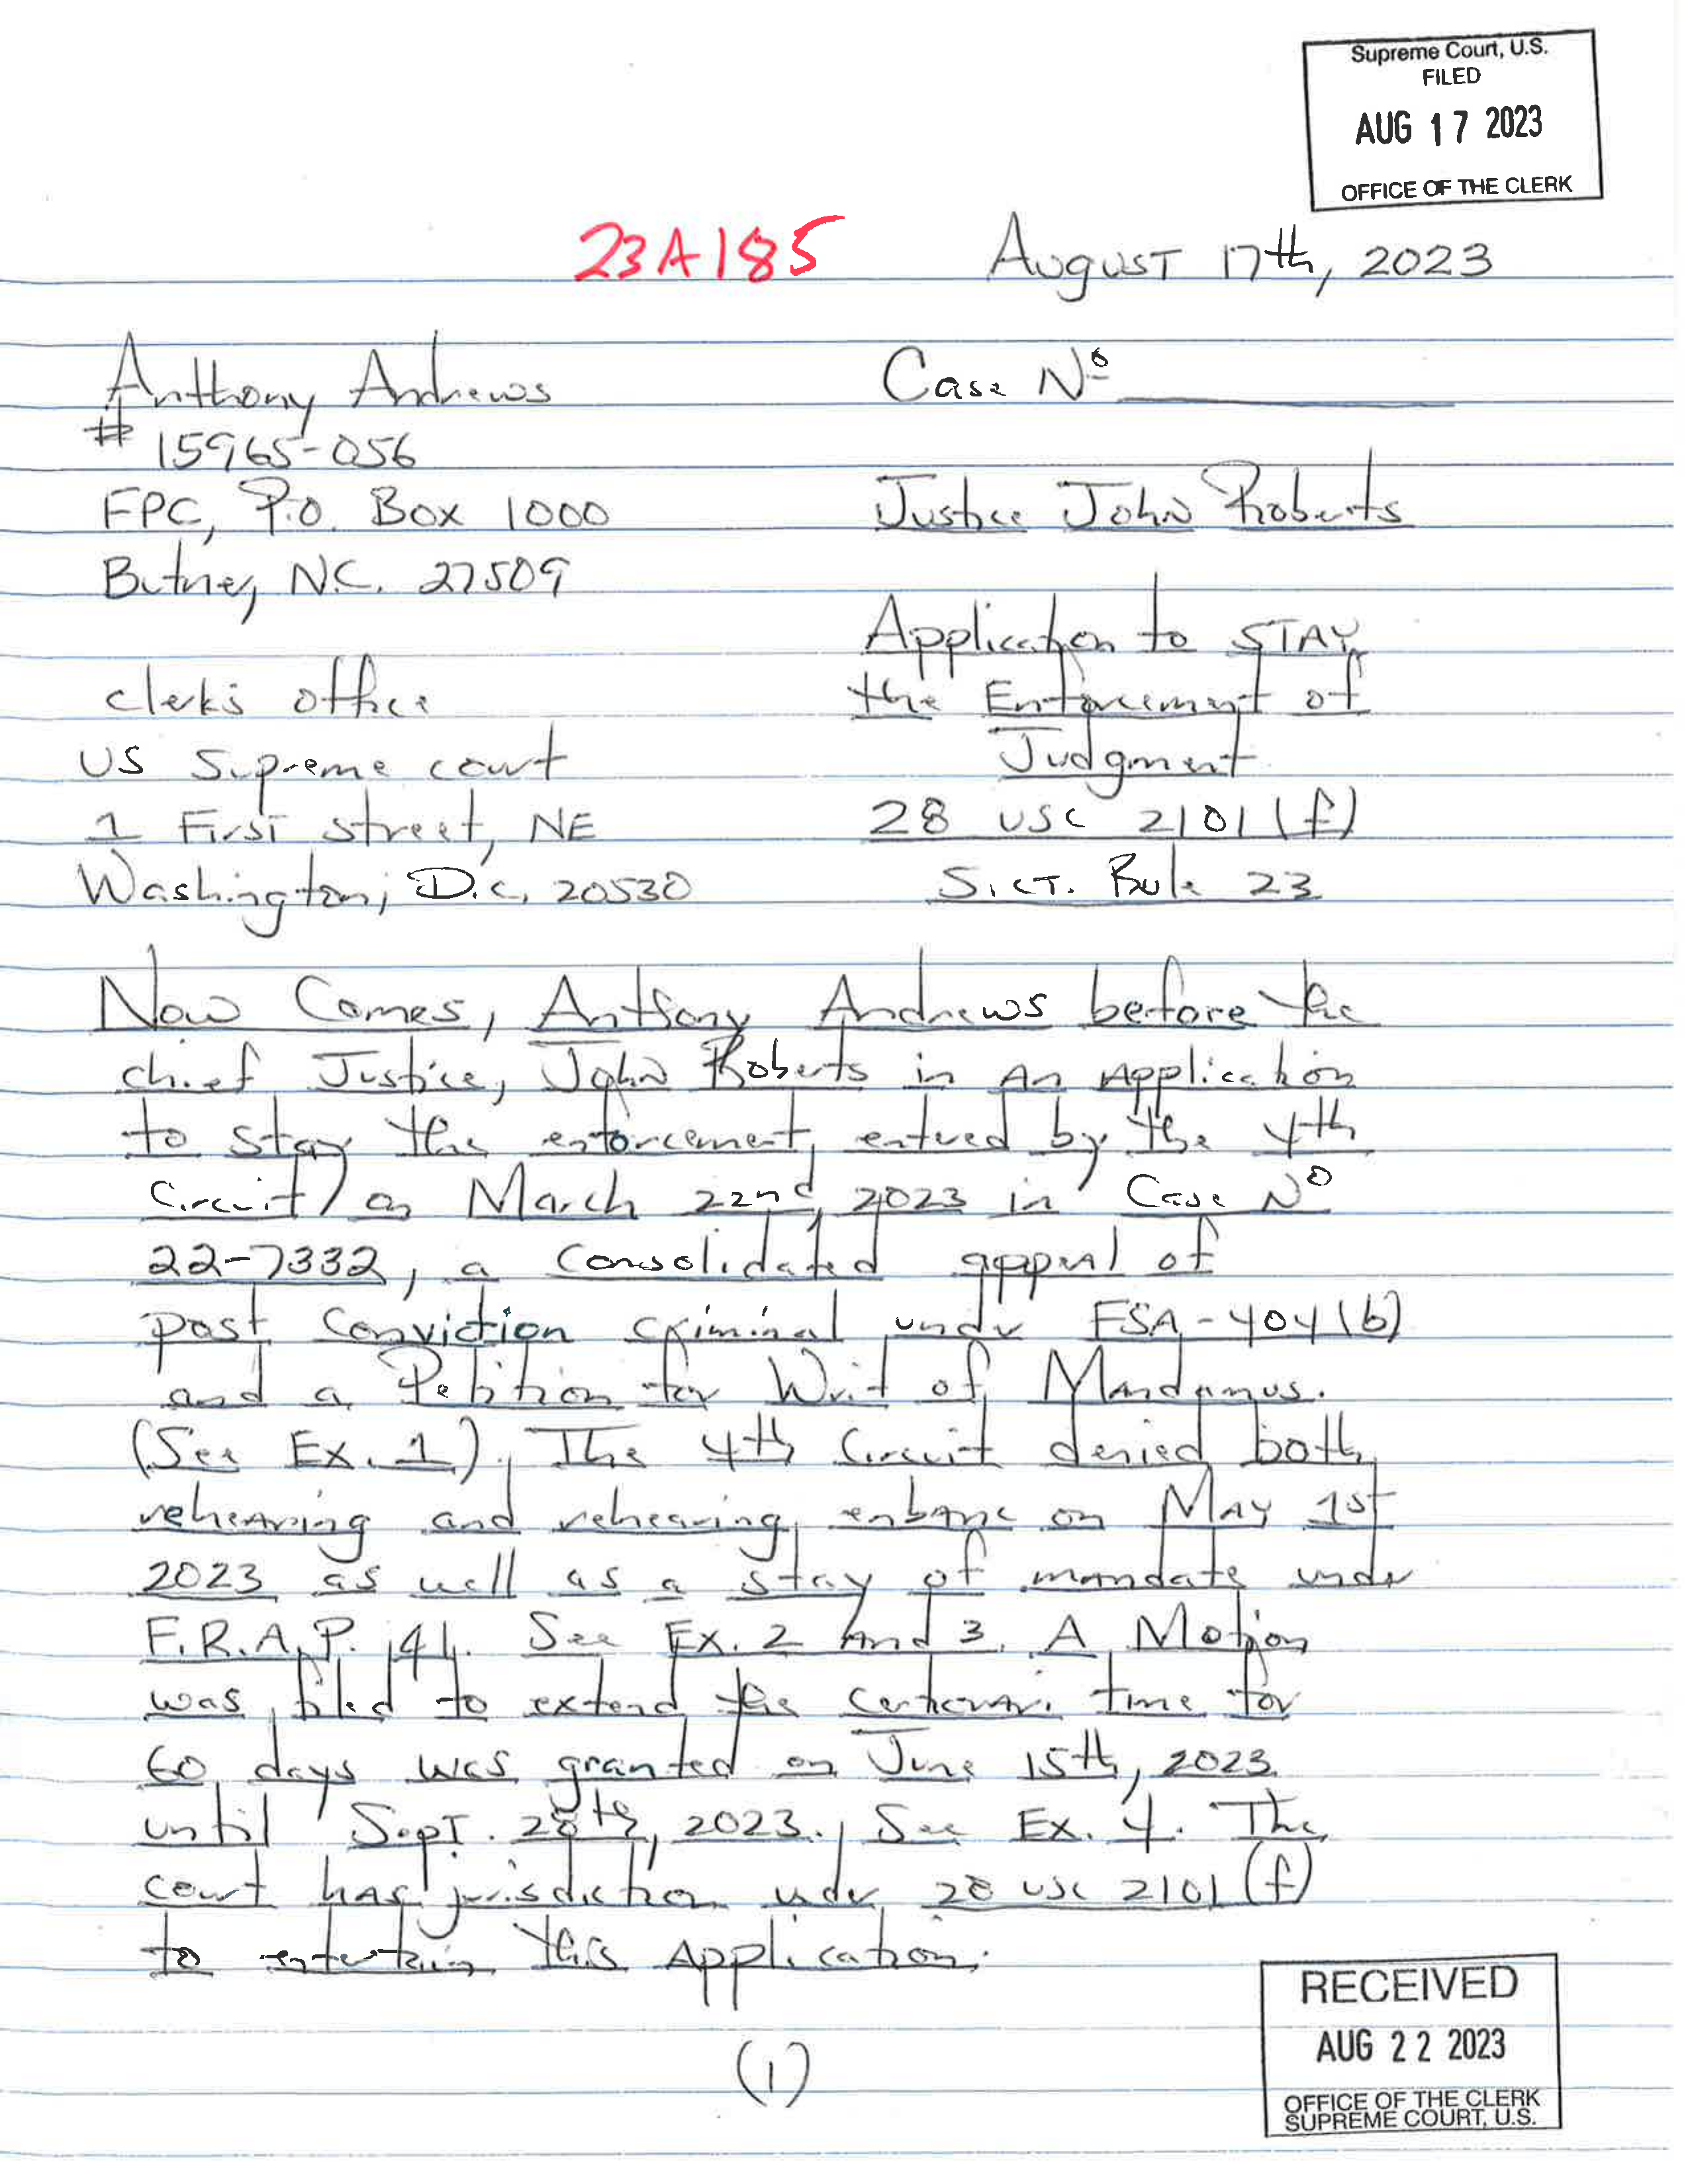 Supreme Court, U.S.
FILED
AUG 17 2023
OFFICE OF THE CLERK
23A185
August 17th, 2023
Anthony Andrews
# 15965-056
FPC, P.O. Box 1000
Butner, N.C. 27509
Case Nº
Justice John Roberts
Application to STAY
the Enforcement of
Judgment
28 USC 2101(f)
S.CT. Rule 23
clerk's office
US Supreme court
1 First street, NE
Washington, D.C. 20530
Now Comes, Anthony Andrews before the
chief Justice, John Roberts in An Application
to stay the enforcement, entered by the 4th
Circuit, on March 22nd, 2023 in Case Nº
22-7332, a consolidated appeal of
post conviction criminal under FSA-404(b)
and a Petition for Writ of Mandamus.
(See Ex. 1). The 4th Circuit denied both
rehearing and rehearing enbanc on May 1st
2023 as well as a stay of mandate under
F.R.A.P. 41. See Ex. 2 And 3. A Motion
was filed to extend the certiorari time for
60 days was granted on June 15th, 2023
until Sept. 28th, 2023. See Ex. 4. The
court has jurisdiction under 28 USC 2101(f)
to entertain this Application.
(1)
RECEIVED
AUG 22 2023
OFFICE OF THE CLERK
SUPREME COURT, U.S.